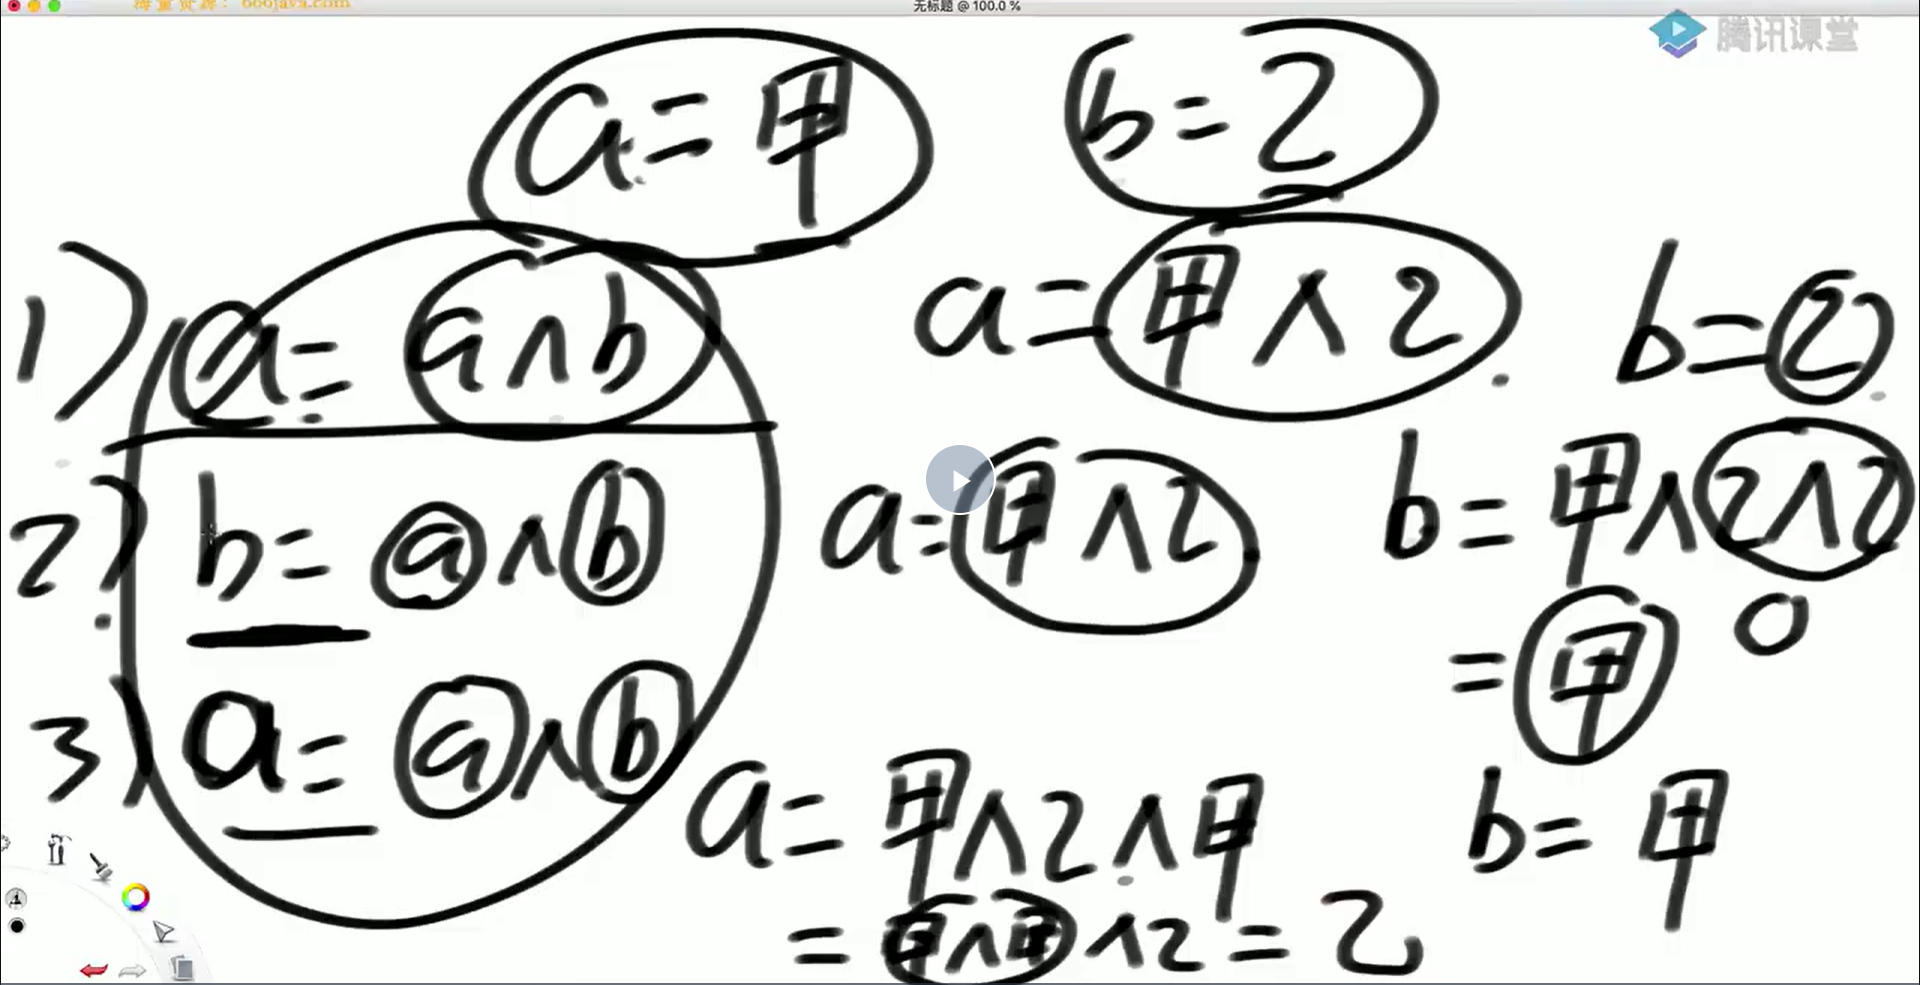 海量资源：666java.com
无标题 @ 100.0 %
腾讯课堂
a = 甲 b = 乙
1) a = a ∧ b a = 甲 ∧ 乙 b = 乙
2) b = a ∧ b a = 甲 ∧ 乙 b = 甲 ∧ 乙 ∧ 乙
0
= 甲
3) a = a ∧ b a = 甲 ∧ 乙 ∧ 甲 b = 甲
= 甲 ∧ 甲 ∧ 乙 = 乙